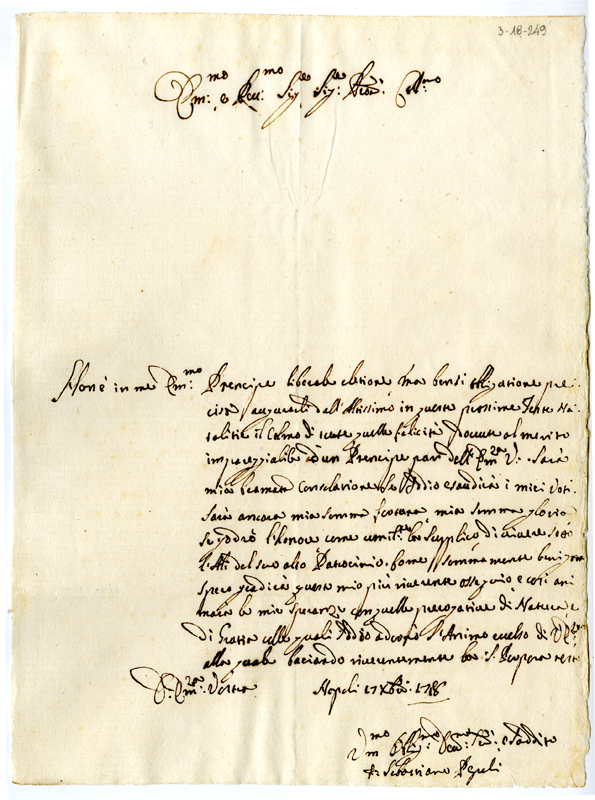 3-18-249
Em:mo e Rev:mo Sig:re Sig:re
Non è in me Em:mo Prencipe liberale eletione mà bensì obligatione pre-
cisa augurarli dall'Altissimo in queste prossime Feste Na-
talitie il Colmo di tutte quelle felicità dovute al merito
impareggiabile d'un Prencipe pari dell'Em:za V: Sarà
mia bramata consolatione se Iddio esaudirà i miei voti.
Sarà ancora mia somma mia somma gloria
se godrò l'honore come la supplico di vivere sotto
del suo alto Patrocinio. Come sommamente benigno
spero gradirà questo mio più riverente ossequio e così ani
marà le mie speranze con quelle prerogative di Natura e
di Gratia colle quali Iddio adornò l'Animo eccelso di
alla quale baciando riverentemente la S. Porpora resto
Em:za Vostra Napoli 17 Xbre
e Suddito
Sebastiano Pepoli